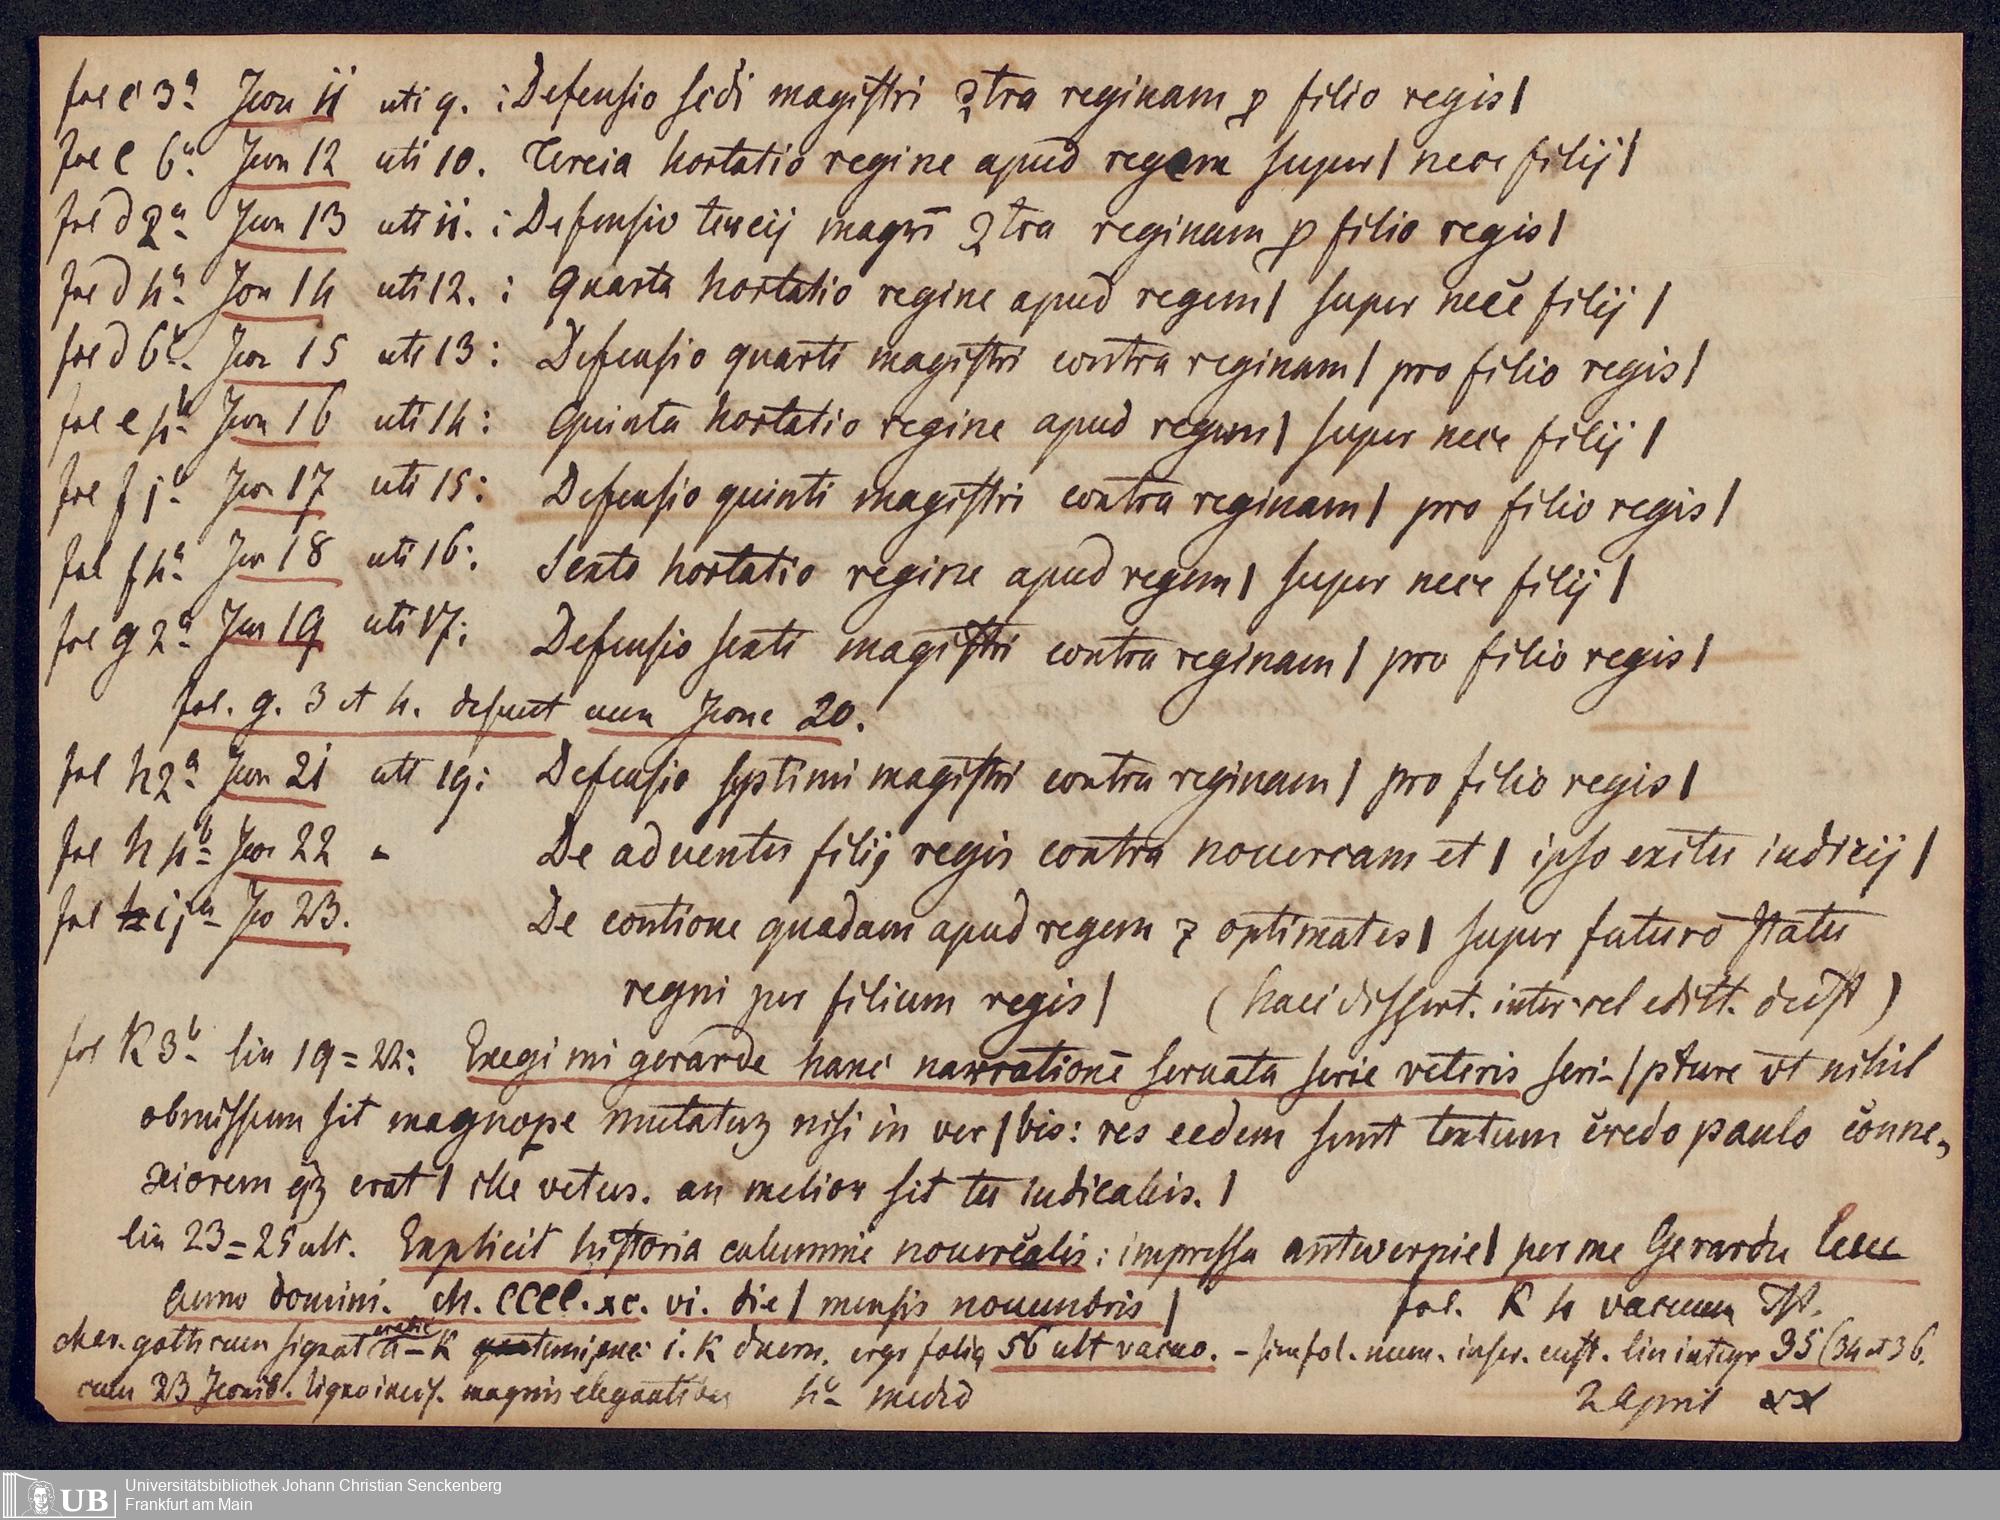 fol c 3a Icon ii uti 9. : Defensio scdi magistri ꝯtra reginam ꝑ filio regis|
fol c 6a Icon 12 uti 10. Tercia hortatio regine apud regem super| nece filij|
fol d 2a Icon 13 uti ii. : Defensio tercij magri ꝯtra reginam ꝑ filio regis|
fol d 4a Icon 14 uti 12. : Quarta hortatio regine apud regem| super nece filij|
fol d 6b Icon 15 uti 13: Defensio quarti magistri contra reginam| pro filio regis|
fol e 4b Icon 16 uti 14: Quinta hortatio regine apud regem| super nece filij|
fol f jb Icon 17 uti 15: Defensio quinti magistri contra reginam| pro filio regis|
fol f 4a Icon 18 uti 16: Sexta hortatio regine apud regem| super nece filij|
fol g 2a Icon 19 uti 17: Defensio sexti magistri contra reginam| pro filio regis|
fol. g. 3 et 4. desunt cum Icone 20.
fol h 2a Icon 21 uti 19: Defensio septimi magistri contra reginam| pro filio regis|
fol h 4b Icon 22 - De aduentu filij regis contra nouercam et| ipso exitu iudicij|
fol i ja Ico 23. De contione quadam apud regem ⁊ optimates| super futuro statu
regni per filium regis| (haec dissert. inter rel editt. deest)
fol K 3b lin 19=22: Exegi mi gerarde hanc narrationē seruata serie veteris scri-|pture vt nihil
obmissum sit magnope mutatuꝫ nisi in ver|bis: res eedem sunt textum credo paulo conne,
xiorem qꝫ erat| ille vetus. an melior sit tu iudicabis.|
lin 23=25 ult. Explicit historia calumnie nouercalis: impressa antwerpie| per me Gerardu leeu
Anno domini. M. CCCC. xc. vi. die| mensis nouembris| fol. K 4 vacuum est.
char. goth cum signat a-K i. K duern. ergo folia 56 ult vacuo. - sine fol. num. inscr. cust. lin integr 35 (34 et 36.
cum 23 Iconib. ligno incis. magnis elegantibus 4o medio 2 April xx
Universitätsbibliothek Johann Christian Senckenberg
Frankfurt am Main
UB